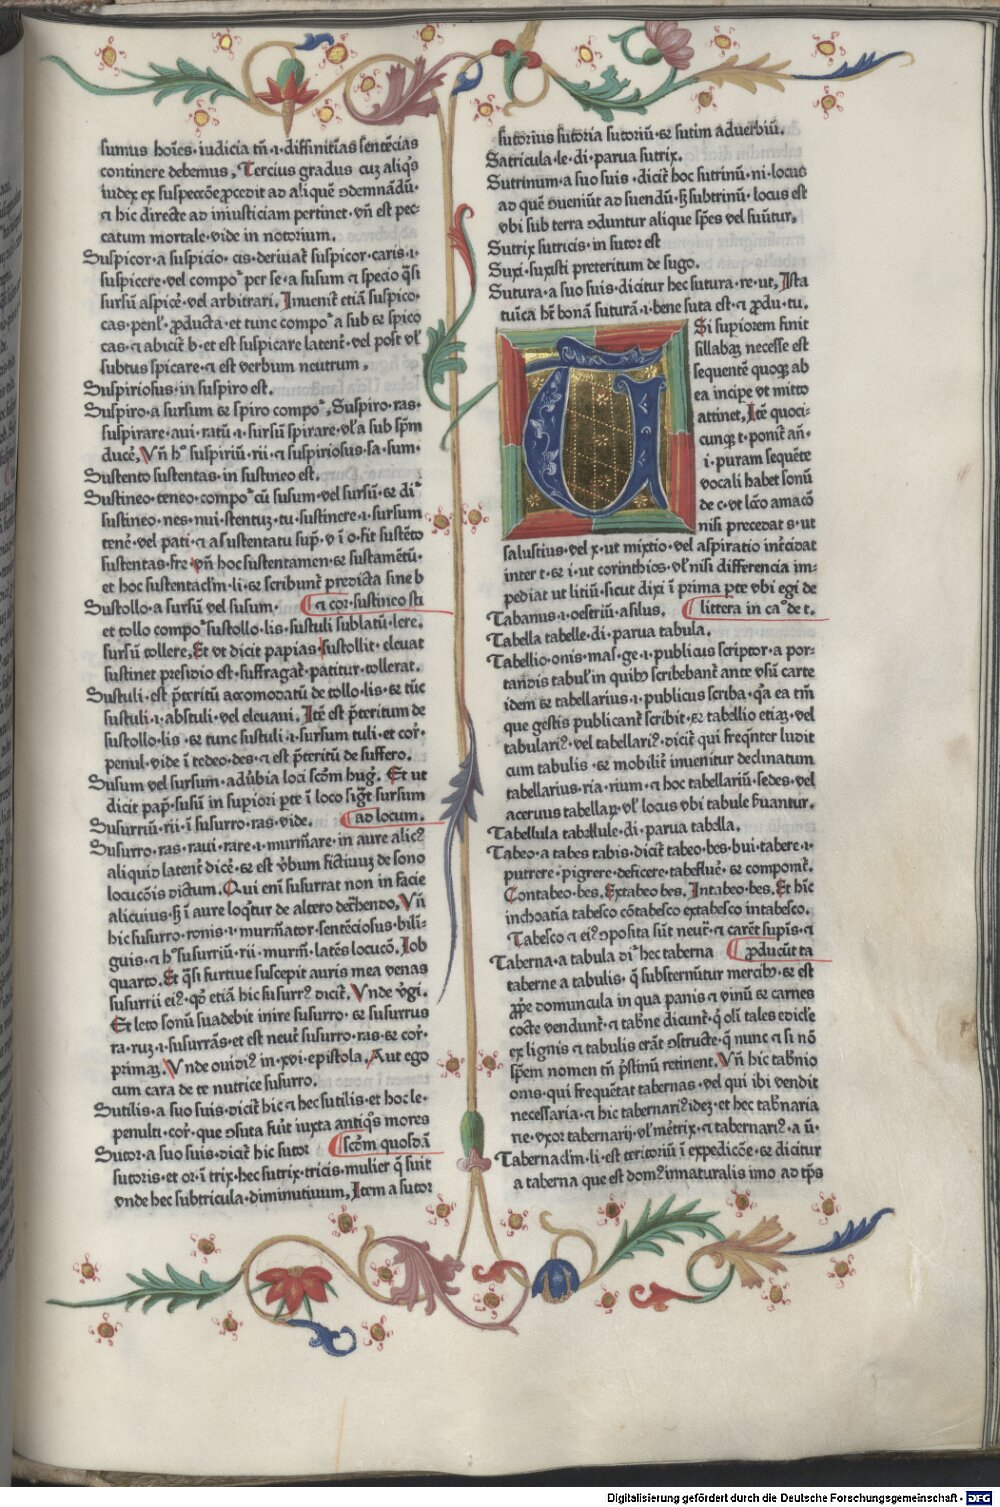 sumus hoīes·iudicia tn̄·i·diffinitīas sentēcias
continere debemus, Tercius gradus cuz aliq̄s
iudex ex suspecc̄oe p̱cedit ad aliquē ꝯdemnādū·
⁊ hic directe ad iniusticiam pertinet·vn̄ est pec
catum mortale·vide in notorium.
Suspicor·a suspicio·cis·deriuat᷑ suspicor·caris·i·
suspicere·vel compoˢ per se·a susum ⁊ specio q̄si
sursū aspicē·vel arbitrari. Inuenit᷑ etiā suspico·
cas·penl᷑·ꝓducta·et tunc compoˢa sub ⁊ spico
cas·⁊ abicit᷑ b·et est suspicare latent᷑·vel post vl᷑
subtus spicare·⁊ est verbum neutrum,
Suspiriosus·in suspiro est.
Suspiro·a sursum ⁊ spiro compoˢ, Suspiro·ras·
suspirare·aui·ratū·i·sursū spirare·vl᷑a sub spm̄
ducē, Vn̄ hᵒ suspiriū·rii·⁊ suspiriosus·sa·sum·
Sustento sustentas·in sustineo est.
Sustineo·teneo·compoˢ cū susum·vel sursū·⁊ diˢ
sustineo·nes·nui·stentuz·tu·sustinere·i·sursum
tenē·vel pati·⁊ a sustentatu sup̄·v ī o·fit sustēto
sustentas·fre·vn̄ hoc sustentamen·⁊ sustamētū·
et hoc sustentacl᷑m·li·⁊ scribunt᷑ predicta sine b
Sustollo·a sursū vel susum· ⁋ ⁊ cor᷑·sustineo sti
et tollo compoˢ sustollo·lis·sustuli sublatū·lere·
sursū tollere, Et vt dicit papias·sustollit·eleuat
sustinet presidio est·suffragat᷑·patitur·tollerat.
Sustuli·est p̄teritū accomodatū de tollo·lis·⁊ tūc
sustuli·i·abstuli·vel eleuaui. Itē est p̄teritum de
sustollo·lis·⁊ tunc sustuli·i·sursum tuli·et cor᷑·
penul·vide ī tedeo·des·⁊ est p̄teritū de suffero.
Susum vel sursum·adūbia loci scōm hug᷑. Et ut
dicit pap᷑·susū in supiori pte ī loco sigt᷑ sursum
Susurriū·rii·ī susurro·ras·vide. ⁋ ad locum.
Susurro·ras·raui·rare·i·murm̄are·in aure alicꝰ
aliquid latent᷑ dicē·⁊ est ūbum fictiuuz de sono
locucōis dictum. Qui enī susurrat non in facie
alicuius·ꝫ ī aure loq̄tur de altero det᷑hendo, Vn̄
hic susurro·ronis·i·murm̄ator·sentēciosus·bili-
guis·⁊ hᵒ susurriū·rii·murm̄·latēs locucō. Iob
quarto. Et q̄si furtiue suscepit auris mea venas
susurrii eiꝰ·qd᷑ etiā hic susurrꝰ dicit᷑. Vnde v̄gi.
Et leto sonū suadebit inire susurro·⁊ susurrus
ra·ruz·i·susurrās·et est neut᷑ susurro·ras·⁊ cor᷑·
primaꝫ. Vnde ouidiꝰ in·xvi·epistola, Aut ego
cum cara de te nutrice susurro.
Sutilis·a suo suis·dicit᷑ hic ⁊ hec sutilis·et hoc le·
penulti·cor᷑·que ꝯsuta sunt iuxta antiq̄s mores
Sutor·a suo suis·dicit᷑ hic sutor ⁋ scōm quosdā
sutoris·et or·ī trix·hec sutrix·tricis·mulier q̄ suit
vnde hec subtricula·diminutiuum, Item a sutor
sutorius sutoria sutoriū·⁊ sutim aduerbiū.
Satricula·le·di·parua sutrix.
Sutrinum·a suo suis·dicit᷑ hoc sutrinū·ni·locus
ad quē ꝯueniūt ad suendū·ꝫ subtrinū·locus est
vbi sub terra ꝯduntur alique sp̄es vel suūtur,
Sutrix sutricis·in sutor est
Suxi·suxisti preteritum de sugo.
Sutura·a suo suis·dicitur hec sutura·re·ut, Ista
tuīca ht᷑ bonā suturā·i·bene suta est·⁊ ꝓdu·tu.
T Si supiorem finit
sillabaꝫ necesse est
sequentē quoqꝫ ab
ea incipe vt mitto
attinet, Itē quoci-
cunqꝫ t·ponit᷑ an̄·
i·puram sequēte
vocali habet sonū
de c·vt lāco amacō
nisi precedat s·ut
salustius·vel x·ut mixtio·vel aspiratio int᷑cidat
inter t·⁊ i·ut corinthios·vl᷑ nisi differencia im-
pediat ut litiū·sicut dixi ī prima pte vbi egi de
Tabanus·i·oestriū·asilus. ⁋ littera in caˢ de t.
Tabella tabelle·di·parua tabula.
Tabellio·onis·mas·ge·i·publicus scriptor·a por-
tandis tabul᷑ in quibꝫ scribebant᷑ ante vsū carte
idem ⁊ tabellarius·i·publicus scriba·q̄a ea tm̄
que gestis publicant᷑ scribit·⁊ tabellio etiaꝫ·vel
tabulariꝰ·vel tabellariꝰ·dicit᷑ qui freqn̄ter ludit
cum tabulis·⁊ mobilit᷑ inuenitur declinatum
tabellarius·ria·rium·⁊ hoc tabellariū·sedes·vel
aceruus tabellaꝝ·vl᷑ locus vbi tabule ŝuantur.
Tabellula tabellule·di·parua tabella.
Tabeo·a tabes tabis·dicit᷑ tabeo·bes·bui·tabere·i·
putrere·pigrere·deficere·tabefluē·⁊ componit᷑.
Contabeo·bes. Extabeo bes. Intabeo·bes. Et hīc
inchoatīa tabesco cōtabesco extabesco intabesco.
Tabesco ⁊ eiꝰ ꝯposita sūt neut᷑·⁊ carēt supīs·⁊
Taberna·a tabula diˢ hec taberna ⁋ ꝓducūt ta
taberne·a tabulis·q̄ substernūtur mercibꝫ·⁊ est
ꝓpe domuncula in qua panis ⁊ vinū ⁊ carnes
cocte vendunt᷑·⁊ tab᷑ne dicunt᷑·q̄ oli tales ediclē
ex lignis ⁊ tabulis erāt ꝯstructe·q̄ nunc ⁊ si nō
spēm nomen tn̄ p̄stinū retinent. Vn̄ hic tab᷑nio
onis·qui frequētat tabernas·vel qui ibi vendit
necessaria·⁊ hic tabernariꝰ ideꝫ·et hec tab᷑naria
rie·vxor tabernarij·vl᷑ mēt᷑rix·⁊ tabernariꝰ·a·ū·
Tabernacl᷑m·li·est teritoriū ī expedicōe·⁊ dicitur
a taberna que est domꝰ innaturalis imo ad tp̄s
Digitalisierung gefördert durch die Deutsche Forschungsgemeinschaft - DFG